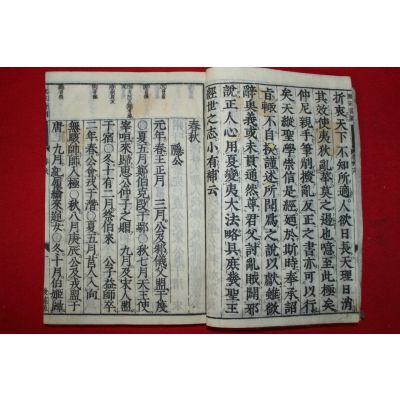 折衷天下不知所適人欲日長天理日消
其效使夷狄亂華莫之遏也噫至此極矣
仲尼親手筆削撥亂反正之書亦可以行
矣天縱聖學崇信是經廼於斯時奉承詔
旨輒不自揆謹述所聞爲之說以獻雖微
辭奧義或未貫通然尊君父討亂賊闢邪
說正人心用夏變夷大法略具庶幾聖王
經世之志小有補云
春秋
隱公
元年春王正月 三月公及邾儀父盟于蔑
○夏五月鄭伯克段于鄢 秋七月天王使
宰咺來歸惠公仲子之賵 九月及宋人盟
于宿○冬十有二月祭伯來 公子益師卒
二年春公會戎于潛○夏五月莒人入向
無駭帥師入極 秋八月庚辰公及戎盟于
唐 九月紀履緰來逆女○冬十月伯姬歸